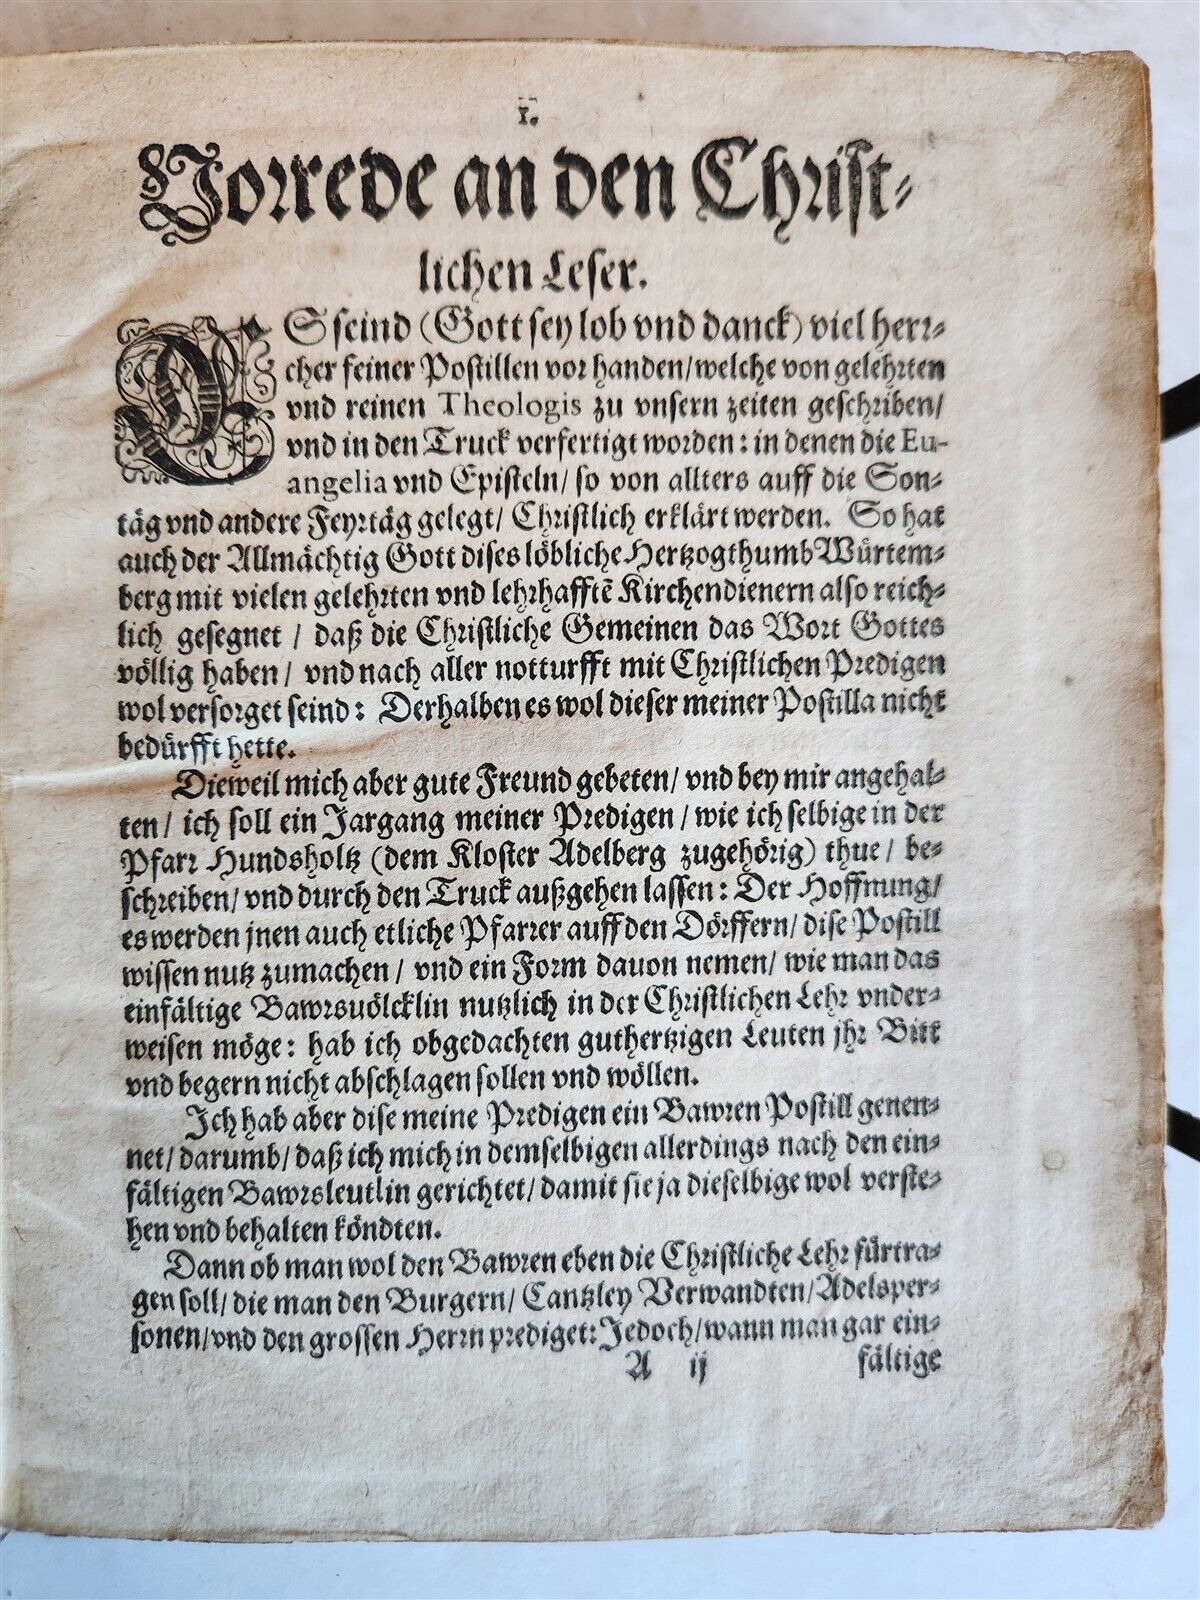 I.
Vorrede an den Christ⸗
lichen Leser.
ES seind (Gott sey lob vnd danck) viel herr⸗
cher feiner Postillen vor handen/welche von gelehrten
vnd reinen Theologis zu vnsern zeiten geschriben/
vnd in den Truck verfertigt worden: in denen die Eu-
angelia vnd Episteln/ so von allters auff die Son⸗
täg vnd andere Feyrtäg gelegt/ Christlich erklärt werden. So hat
auch der Allmächtig Gott dises löbliche Hertzogthumb Würtem⸗
berg mit vielen gelehrten vnd lehrhafftē Kirchendienern also reich⸗
lich gesegnet / daß die Christliche Gemeinen das Wort Gottes
völlig haben/ vnd nach aller notturfft mit Christlichen Predigen
wol versorget seind: Derhalben es wol dieser meiner Postilla nicht
bedürfft hette.
Dieweil mich aber gute Freund gebeten/ vnd bey mir angehal⸗
ten/ ich soll ein Jargang meiner Predigen/ wie ich selbige in der
Pfarr Hundsholtz (dem Kloster Adelberg zugehörig) thue/ be⸗
schreiben/ vnd durch den Truck außgehen lassen: Der Hoffnung/
es werden jnen auch etliche Pfarrer auff den Dörffern/ dise Postill
wissen nutz zumachen/ vnd ein Form dauon nemen/ wie man das
einfältige Bawrsuölcklin nutzlich in der Christlichen Lehr vnder⸗
weisen möge: hab ich obgedachten guthertzigen Leuten jhr Bitt
vnd begern nicht abschlagen sollen vnd wöllen.
Ich hab aber dise meine Predigen ein Bawren Postill genen⸗
net/ darumb/ daß ich mich in demselbigen allerdings nach den ein⸗
fältigen Bawrsleutlin gerichtet/ damit sie ja dieselbige wol verste⸗
hen vnd behalten köndten.
Dann ob man wol den Bawren eben die Christliche Lehr fürtra⸗
gen soll/ die man den Burgern/ Cantzley Verwandten/ Adelsper⸗
sonen/ vnd den grossen Herrn prediget: Jedoch/ wann man gar ein⸗
A ij fältige